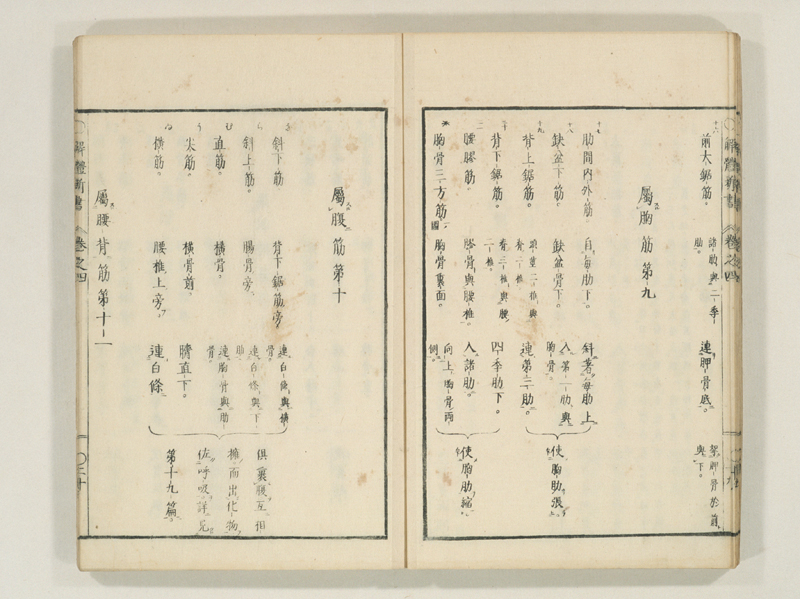 前大鋸筋。 諸肋與二季肋。 連胛骨底。 架胛骨於前與下。
屬胸筋第九
肋間内外筋 自每肋下。 斜著每肋上
缺盆下筋。 缺盆骨下。 入第一肋與胸骨。
背上鋸筋。 連第三肋。 使胸肋張
背下鋸筋。 四季肋下。
腰髎筋。 髎骨與腰椎。 入諸肋。 使胸肋縮
胸骨三方筋 胸骨裏面。 向上胸骨兩側。
解體新書 卷之四
屬腹筋第十
斜下筋。 背下鋸筋旁 連白條與橫骨。
斜上筋。 腸骨旁 連白條與下肋
直筋。 橫骨。 連胸骨與肋骨。
尖筋。 橫骨前。 臍直下。
橫筋。 腰椎上旁。 連白條。
俱裹腹互相
擁而出化物
佐呼吸詳見
第十九篇。
屬腰背筋第十一
解體新書 卷之四 二十